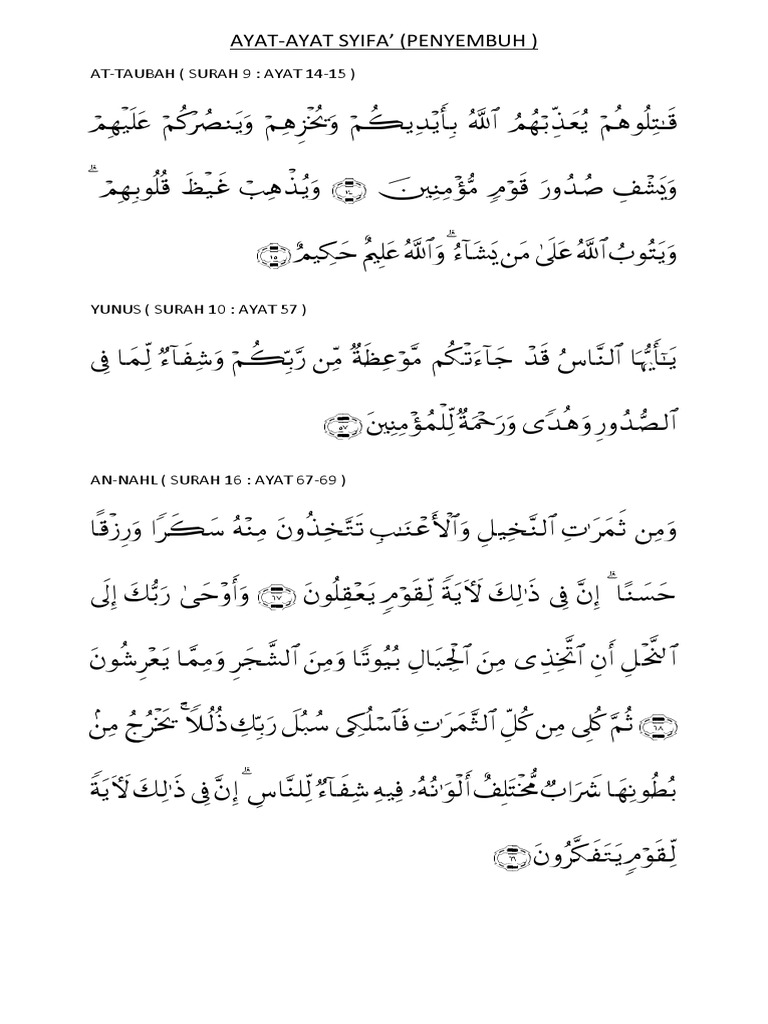 AYAT-AYAT SYIFA’ (PENYEMBUH )
AT-TAUBAH ( SURAH 9 : AYAT 14-15 )
قَـٰتِلُوهُمْ يُعَذِّبْهُمُ ٱللَّهُ بِأَيْدِيكُمْ وَيُخْزِهِمْ وَيَنصُرْكُمْ عَلَيْهِمْ
وَيَشْفِ صُدُورَ قَوْمٍ مُّؤْمِنِينَ ١٤ وَيُذْهِبْ غَيْظَ قُلُوبِهِمْ ۗ
وَيَتُوبُ ٱللَّهُ عَلَىٰ مَن يَشَآءُ ۗ وَٱللَّهُ عَلِيمٌ حَكِيمٌ ١٥
YUNUS ( SURAH 10 : AYAT 57 )
يَـٰٓأَيُّهَا ٱلنَّاسُ قَدْ جَآءَتْكُم مَّوْعِظَةٌ مِّن رَّبِّكُمْ وَشِفَآءٌ لِّمَا فِى
ٱلصُّدُورِ وَهُدًى وَرَحْمَةٌ لِّلْمُؤْمِنِينَ ٥٧
AN-NAHL ( SURAH 16 : AYAT 67-69 )
وَمِن ثَمَرَٰتِ ٱلنَّخِيلِ وَٱلْأَعْنَـٰبِ تَتَّخِذُونَ مِنْهُ سَكَرًا وَرِزْقًا
حَسَنًا ۗ إِنَّ فِى ذَٰلِكَ لَـَٔايَةً لِّقَوْمٍ يَعْقِلُونَ ٦٧ وَأَوْحَىٰ رَبُّكَ إِلَى
ٱلنَّحْلِ أَنِ ٱتَّخِذِى مِنَ ٱلْجِبَالِ بُيُوتًا وَمِنَ ٱلشَّجَرِ وَمِمَّا يَعْرِشُونَ
٦٨ ثُمَّ كُلِى مِن كُلِّ ٱلثَّمَرَٰتِ فَٱسْلُكِى سُبُلَ رَبِّكِ ذُلُلًا ۚ يَخْرُجُ مِنۢ
بُطُونِهَا شَرَابٌ مُّخْتَلِفٌ أَلْوَٰنُهُۥ فِيهِ شِفَآءٌ لِّلنَّاسِ ۗ إِنَّ فِى ذَٰلِكَ لَـَٔايَةً
لِّقَوْمٍ يَتَفَكَّرُونَ ٦٩